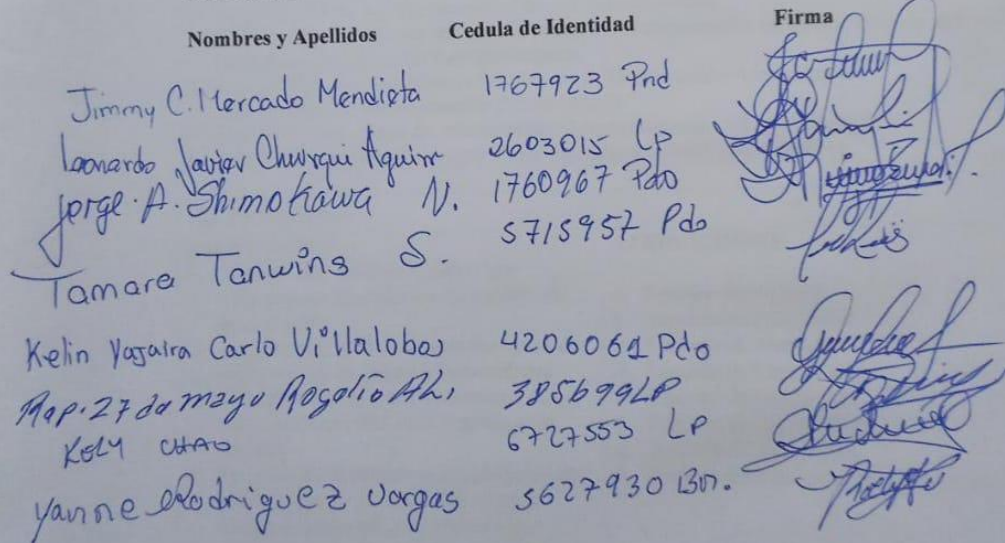 Nombres y Apellidos Cedula de Identidad Firma
Jimmy C. Mercado Mendieta 1767923 Pnd
Leonardo Javier Churqui Aguirr 2603015 Lp
Jorge A. Shimokawa N. 1760967 Pdo
Tamara Tanwing S. 5715957 Pdo
Kelin Yajaira Carlo Villalobos 4206061 Pdo
Rap. 27 de mayo Rogelio 385699LP
KELY CHAO 6727553 LP
Yanine Rodriguez Vargas 5627930 Bn.